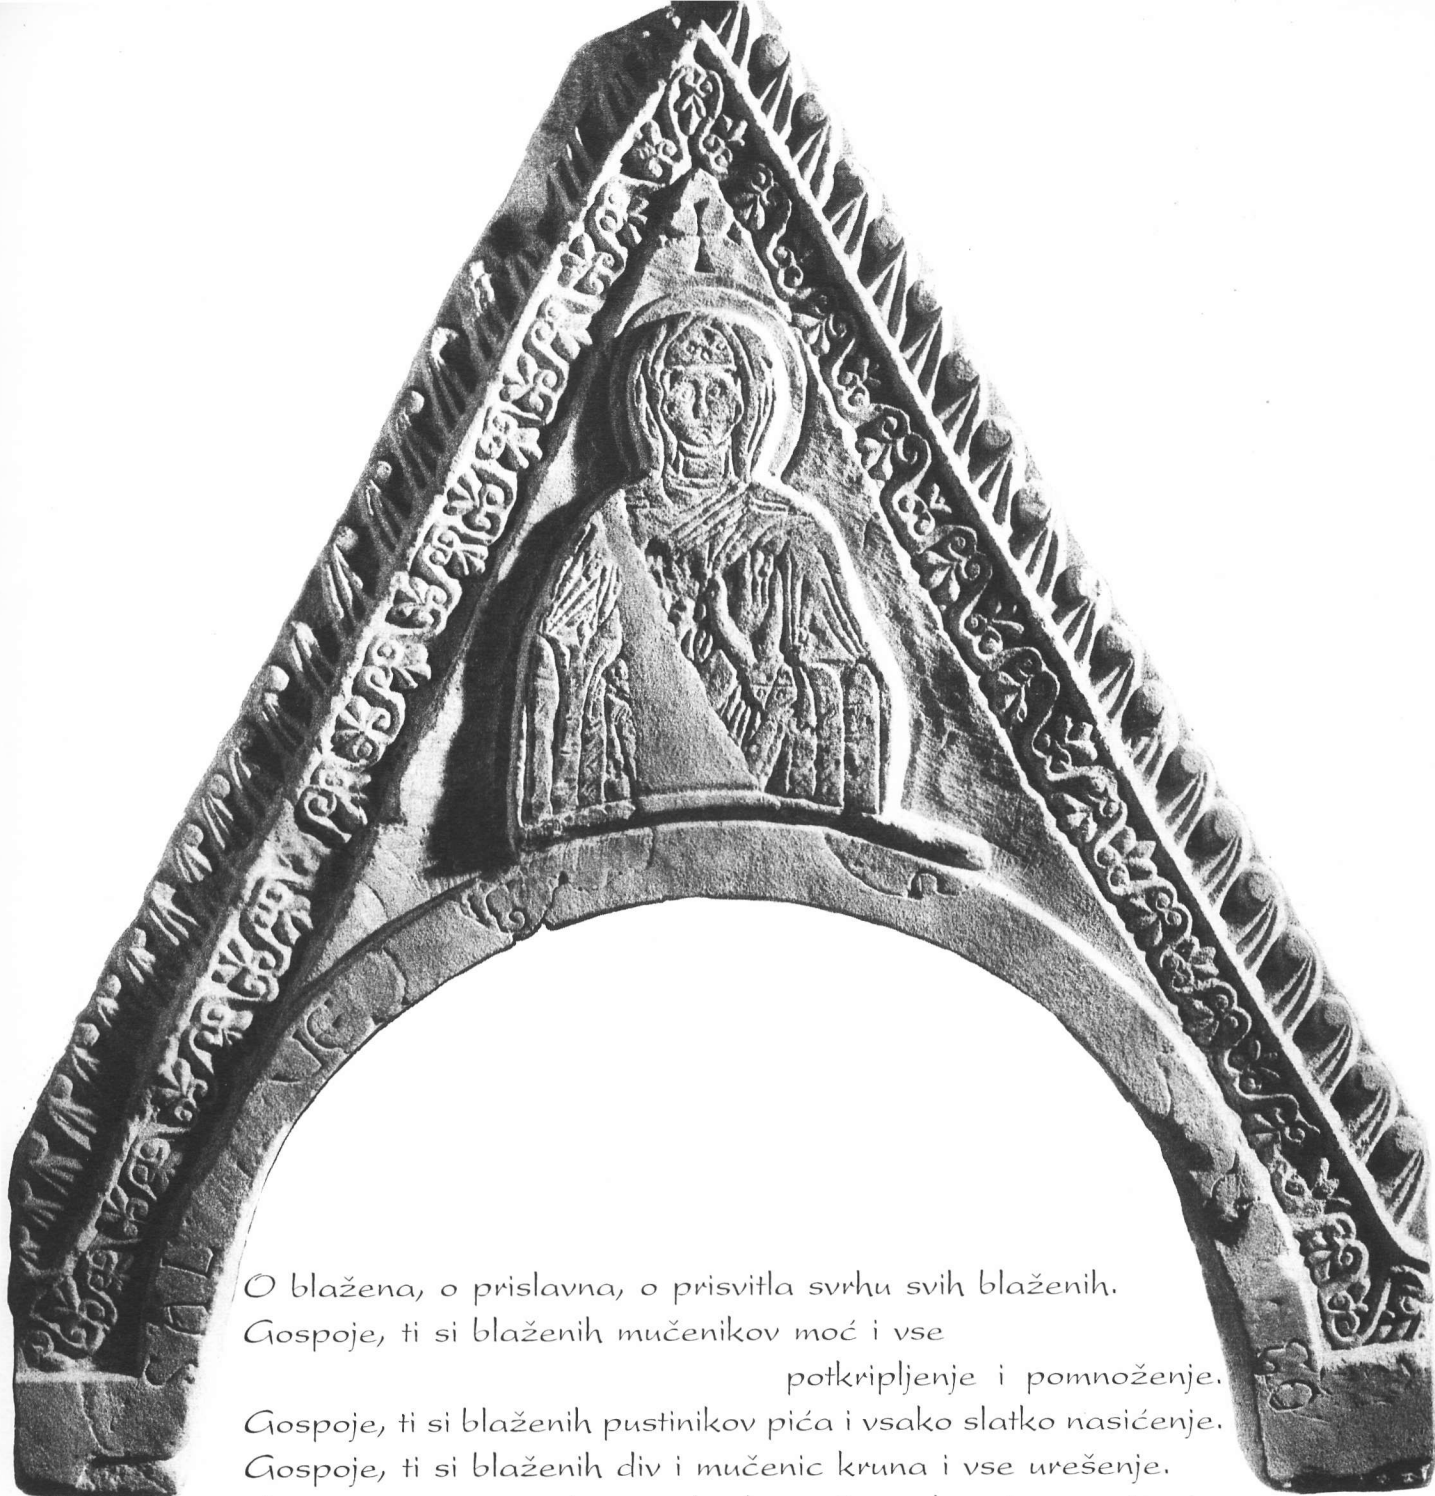 O blažena, o prislavna, o prisvitla svrhu svih blaženih.
Gospoje, ti si blaženih mučenikov moć i vse
potkripljenje i pomnoženje.
Gospoje, ti si blaženih pustinikov pića i vsako slatko nasićenje.
Gospoje, ti si blaženih div i mučenic kruna i vse urešenje.